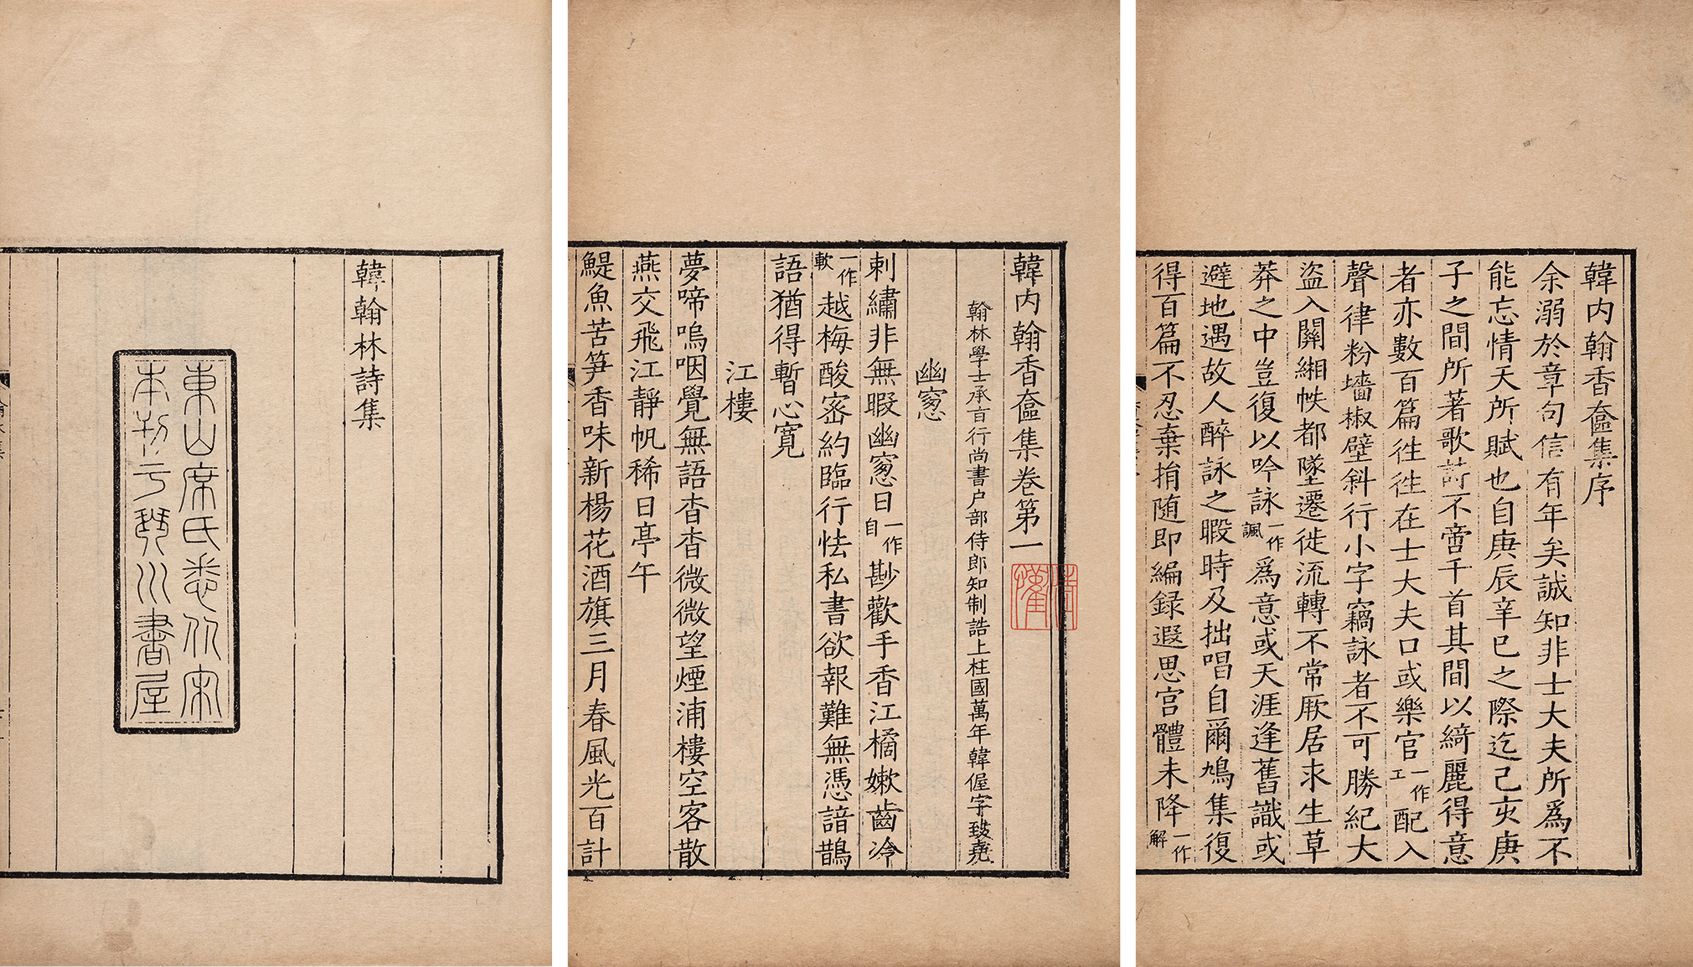 韓内翰香奩集序
余溺於章句信有年矣誠知非士大夫所爲不
能忘情天所賦也自庚辰辛巳之際迄己亥庚
子之間所著歌詩不啻千首其間以綺麗得意
者亦數百篇徃徃在士大夫口或樂官一作工配入
聲律粉墻椒壁斜行小字竊詠者不可勝紀大
盜入關緗帙都墜遷徙流轉不常厥居求生草
莽之中豈復以吟詠一作諷爲意或天涯逢舊識或
避地遇故人醉詠之暇時及拙唱自爾鳩集復
得百篇不忍棄捐随即編録遐思宫體未降一作解
韓内翰香奩集卷第一
翰林學士承旨行尚書户部侍郎知制誥上柱國萬年韓偓字致堯
幽窻
刺繡非無暇幽窻日一作自尠歡手香江橘嫩齒冷
一作軟越梅酸宻約臨行怯私書欲報難無憑諳鵲
語猶得暫心寛
江樓
夢啼嗚咽覺無語杳杳微微望煙浦樓空客散
燕交飛江靜帆稀日亭午
鯷魚苦笋香味新楊花酒旗三月春風光百計
韓翰林詩集
東山席氏悉从宋
本刊于琴川書屋